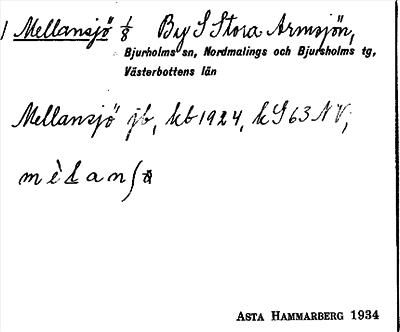 1 Mellansjö 1/8 By S Stora Armsjön,
Bjurholms sn, Nordmalings och Bjurholms tg,
Västerbottens län
Mellansjö jb, kb 1924, k S 63 NV,
Asta Hammarberg 1934